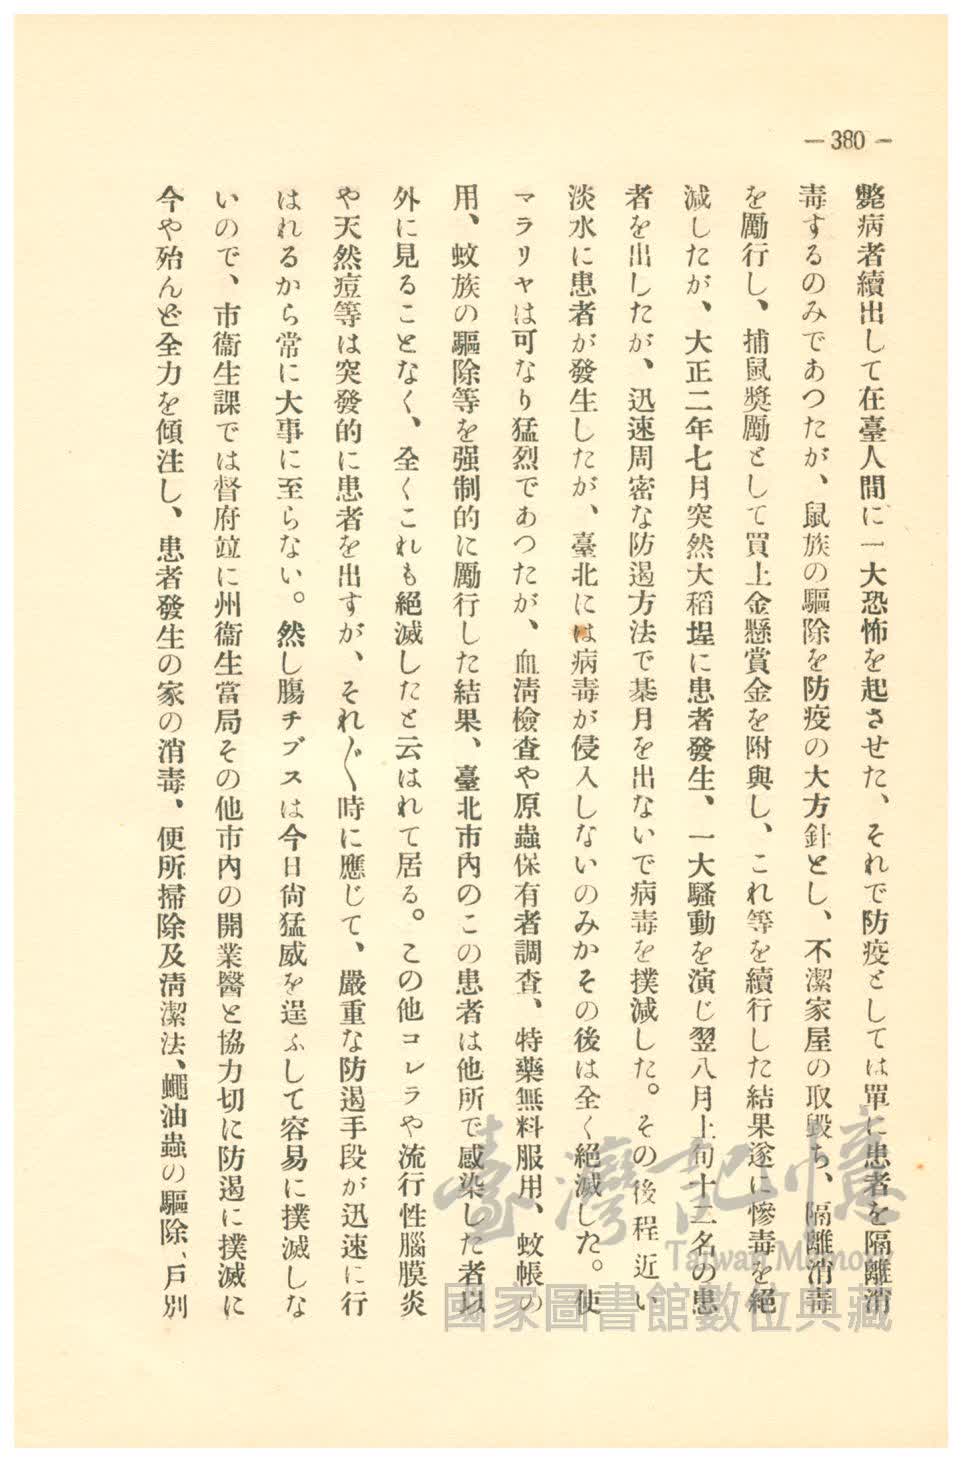 — 380 —
斃病者續出して在臺人間に一大恐怖を起させた、それで防疫としては單に患者を隔離消
毒するのみであつたが、鼠族の驅除を防疫の大方針とし、不潔家屋の取毀ち、隔離消毒
を勵行し、捕鼠奬勵として買上金懸賞金を附與し、これ等を續行した結果遂に慘毒を絕
滅したが、大正二年七月突然大稻埕に患者發生、一大騷動を演じ翌八月上旬十二名の患
者を出したが、迅速周密な防遏方法で朞月を出ないで病毒を撲滅した。その後程近い
淡水に患者が發生したが、臺北には病毒が侵入しないのみかその後は全く絕滅した。使
マラリヤは可なり猛烈であつたが、血淸檢査や原蟲保有者調査、特藥無料服用、蚊帳の
用、蚊族の驅除等を强制的に勵行した結果、臺北市內のこの患者は他所で感染した者以
外に見ることなく、全くこれも絕滅したと云はれて居る。この他コレラや流行性腦膜炎
や天然痘等は突發的に患者を出すが、それ〴〵時に應じて、嚴重な防遏手段が迅速に行
はれるから常に大事に至らない。然し膓チブスは今日尙猛威を逞ふして容易に撲滅しな
いので、市衞生課では督府竝に州衞生當局その他市內の開業醫と協力切に防遏に撲滅に
今や殆んど全力を傾注し、患者發生の家の消毒、便所掃除及淸潔法、蠅油蟲の驅除、戶別
臺灣記憶
Taiwan Memory
國家圖書館數位典藏